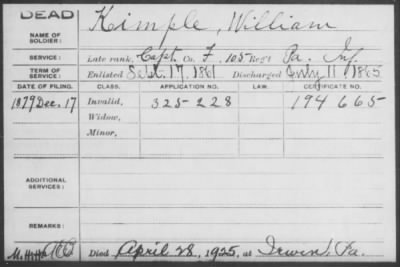 DEAD
NAME OF SOLDIER: Kimple, William
SERVICE: Late rank, Capt. Co. F, 105 Reg't Pa. Inf.
TERM OF SERVICE: Enlisted Sept. 17, 1861 Discharged July 11, 1865
DATE OF FILING. CLASS. APPLICATION NO. LAW. CERTIFICATE NO.
1879 Dec. 17 Invalid, 325-228 194 665
Widow,
Minor,
ADDITIONAL SERVICES:
REMARKS:
Died April 28, 1925, at Irwin, Pa.